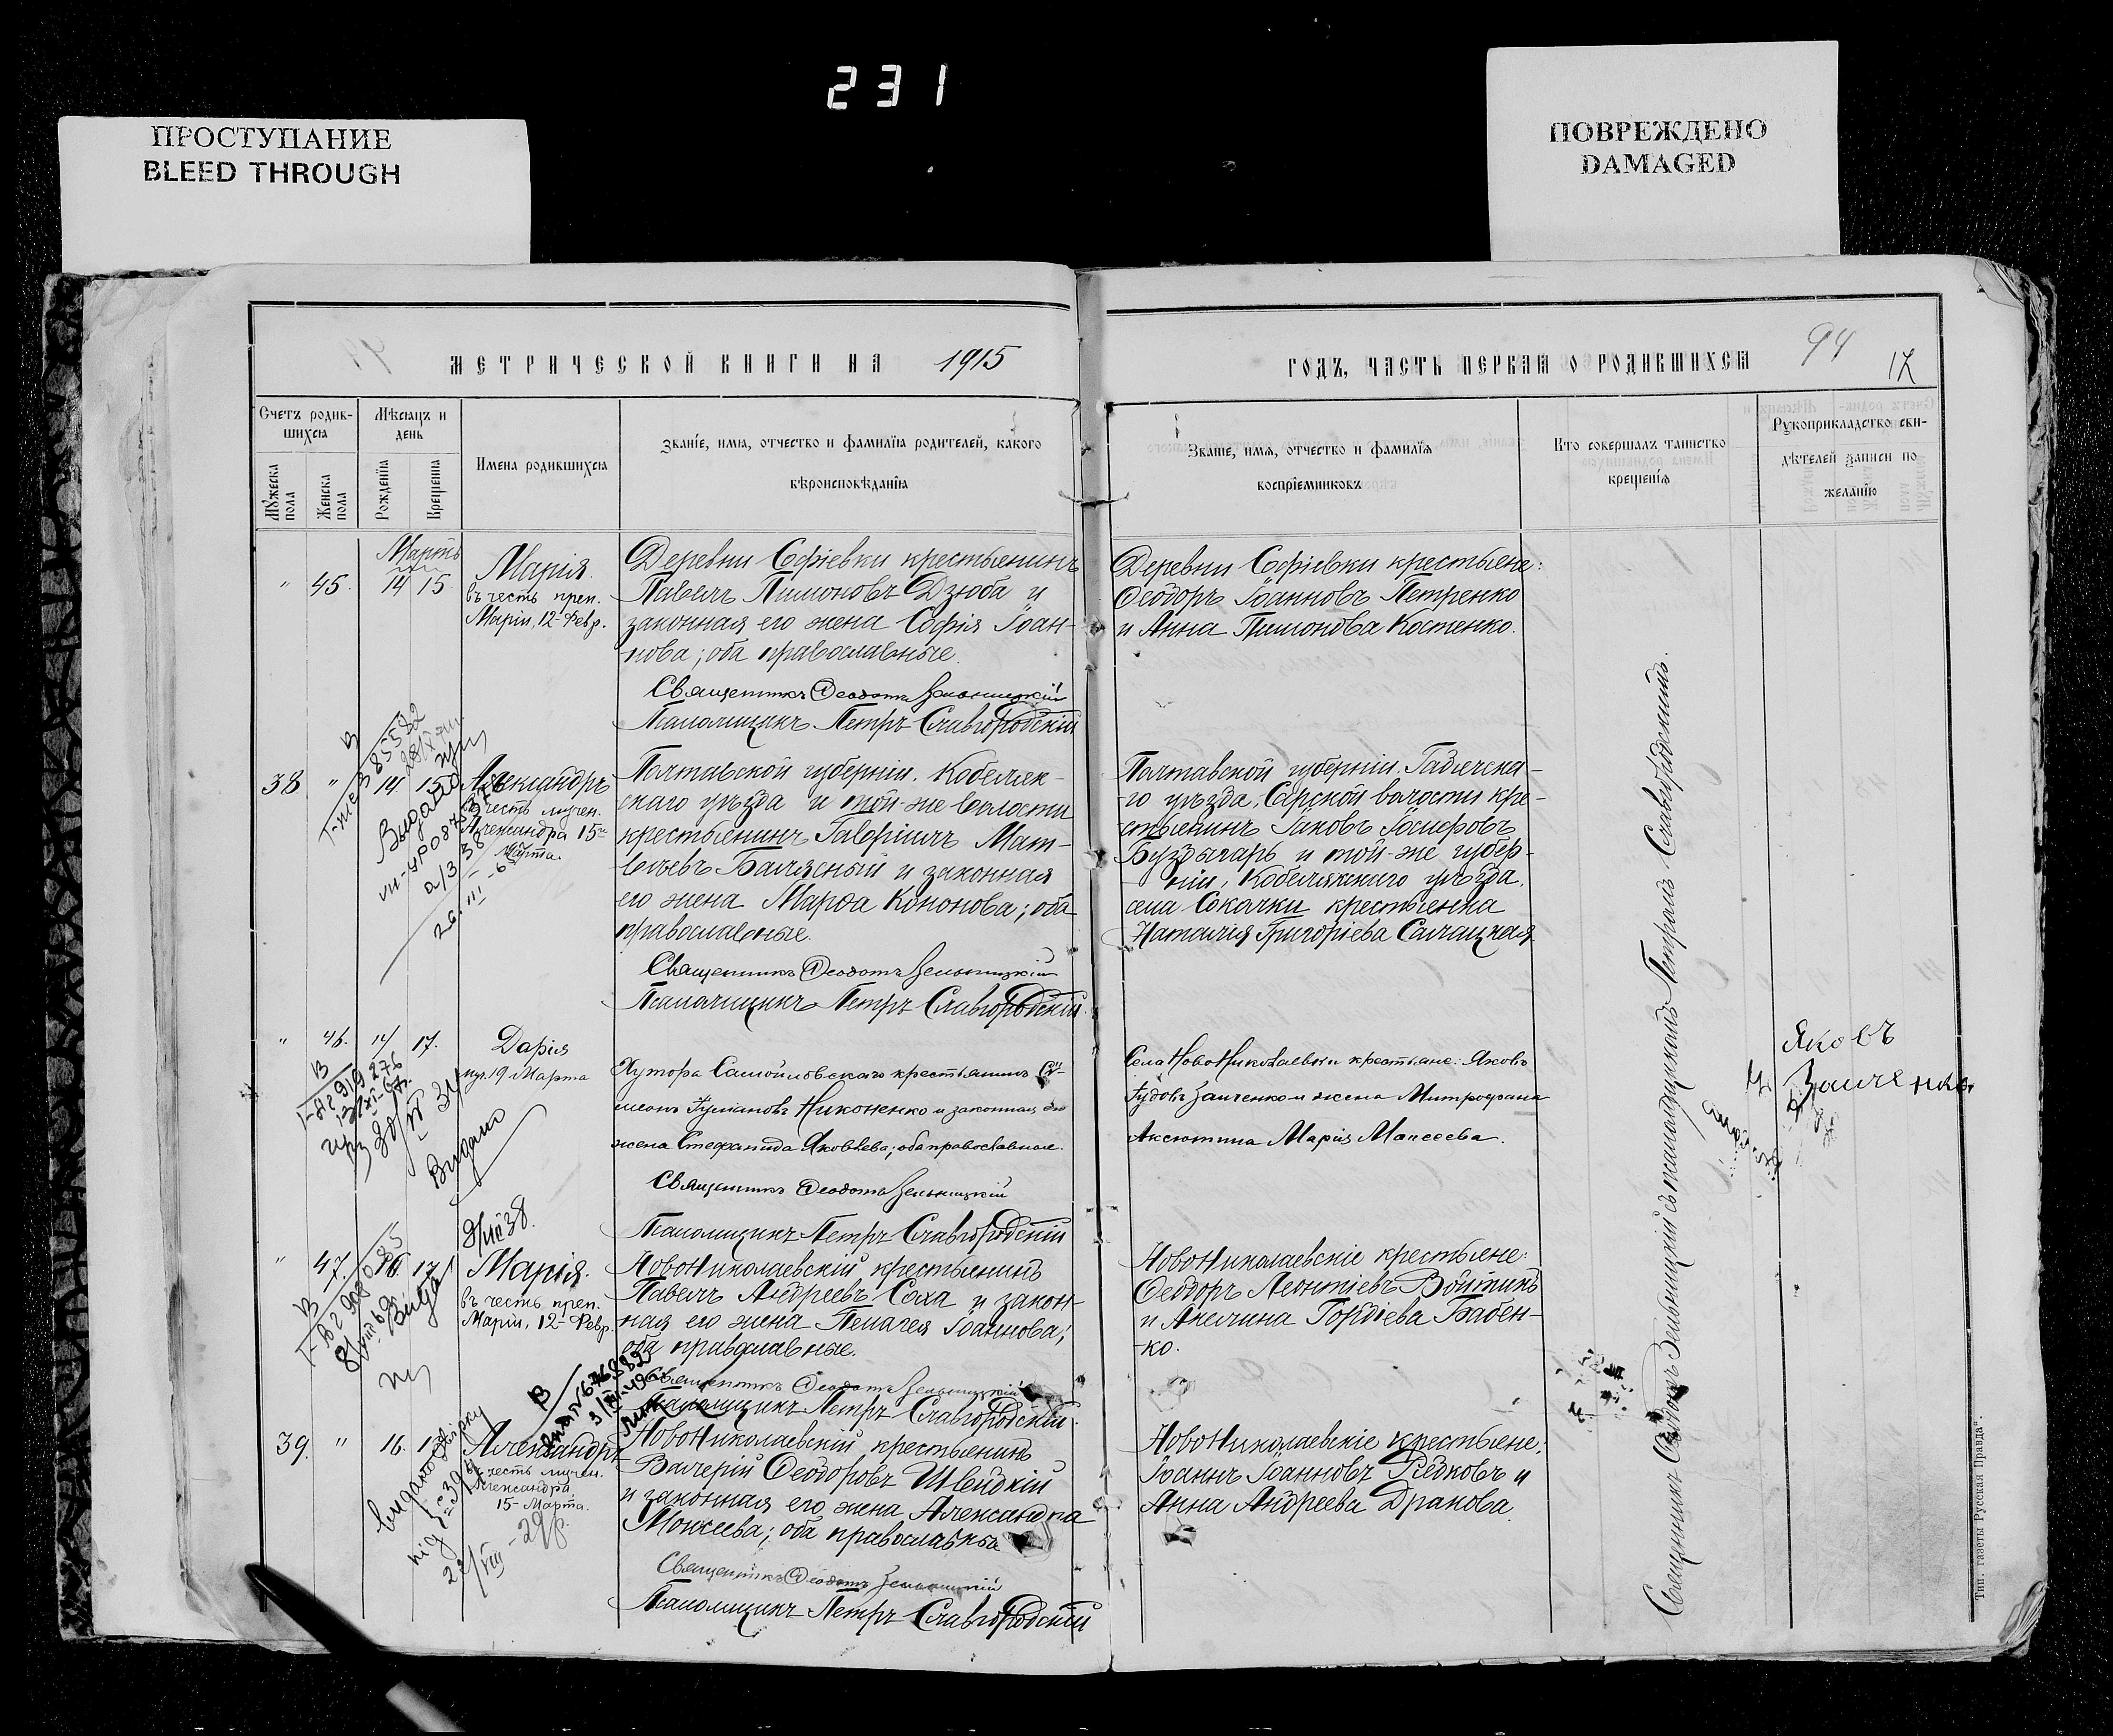 231
ПРОСТУПАНИЕ
BLEED THROUGH
ПОВРЕЖДЕНО
DAMAGED
МЕТРИЧЕСКОЙ КНИГИ НА 1915
ГОДЪ, ЧАСТЬ ПЕРВАЯ О РОДИВШИХСЯ
94
12
Счетъ родив-
шихся
Мѣсяцъ и
день
Мужеска
пола
Женска
пола
Рожденія
Крещенія
Имена родившихся
Званіе, имя, отчество и фамилія родителей, какого
вѣроисповѣданія
Званіе, имя, отчество и фамилія
воспріемниковъ
Кто совершалъ таинство
крещенія
Рукоприкладство сви-
дѣтелей записи по
желанію
Мартъ
" 45. 14 15.
Марія.
въ честь преп.
Маріи, 12 Февр.
Деревни Софіевки крестьянинъ
Павелъ Пимоновъ Дзюба и
законная его жена Софія Іоан-
нова; оба православные.
Священникъ Ѳеодотъ Зельницкій
Псаломщикъ Петръ Славгородскій
Деревни Софіевки крестьяне:
Ѳеодоръ Іоанновъ Петренко
и Анна Пимонова Костенко.
38 " 14 15
Александръ
въ честь мучен.
Александра 15
Марта.
Полтавской губерніи, Кобеляк-
скаго уѣзда и той-же волости
крестьянинъ Гавріилъ Мат-
веевъ Балясный и законная
его жена Марѳа Кононова; оба
православные.
Священникъ Ѳеодотъ Зельницкій
Псаломщикъ Петръ Славгородскій
Полтавской губерніи, Гадячска-
го уѣзда, Сарской волости кре-
стьянинъ Іаковъ Іосифовъ
Буздыгарь и той-же губер-
ніи, Кобелякскаго уѣзда,
села Сокачки крестьянка
Наталія Григоріева Салацкая.
Выдано
" 46. 14 17.
Дарія
муч. 19 Марта
Хутора Самойловскаго крестьянинъ Си-
меонъ Іуліановъ Никоненко и законная его
жена Стефанида Яковлева; оба православные.
Священникъ Ѳеодотъ Зельницкій
Псаломщикъ Петръ Славгородскій
Села НовоНиколаевки крестьяне: Яковъ
Іудовъ Заиченко и жена Митрофана
Аксютина Марія Моисеева.
Яковъ
Заиченко
Видано
" 47. 16 17
Марія.
въ честь преп.
Маріи, 12 Февр.
НовоНиколаевскій крестьянинъ
Павелъ Андреевъ Соха и закон-
ная его жена Пелагея Іоаннова;
оба православные.
Священникъ Ѳеодотъ Зельницкій
Псаломщикъ Петръ Славгородскій
НовоНиколаевскіе крестьяне:
Ѳеодоръ Леонтіевъ Войтикъ
и Акилина Гордіева Бабен-
ко.
39. " 16.
Александръ
въ честь мучен.
Александра
15 Марта.
НовоНиколаевскій крестьянинъ
Валерій Ѳеодоровъ Швейдкій
и законная его жена Александра
Моисеева; оба православные
Священникъ Ѳеодотъ Зельницкій
Псаломщикъ Петръ Славгородскій
НовоНиколаевскіе крестьяне:
Іоаннъ Іоанновъ Рѣдковъ и
Анна Андреева Дранова.
Священникъ Ѳеодотъ Зельницкій съ псаломщикомъ Петромъ Славгородскимъ.
Тип. газеты „Русская Правда".